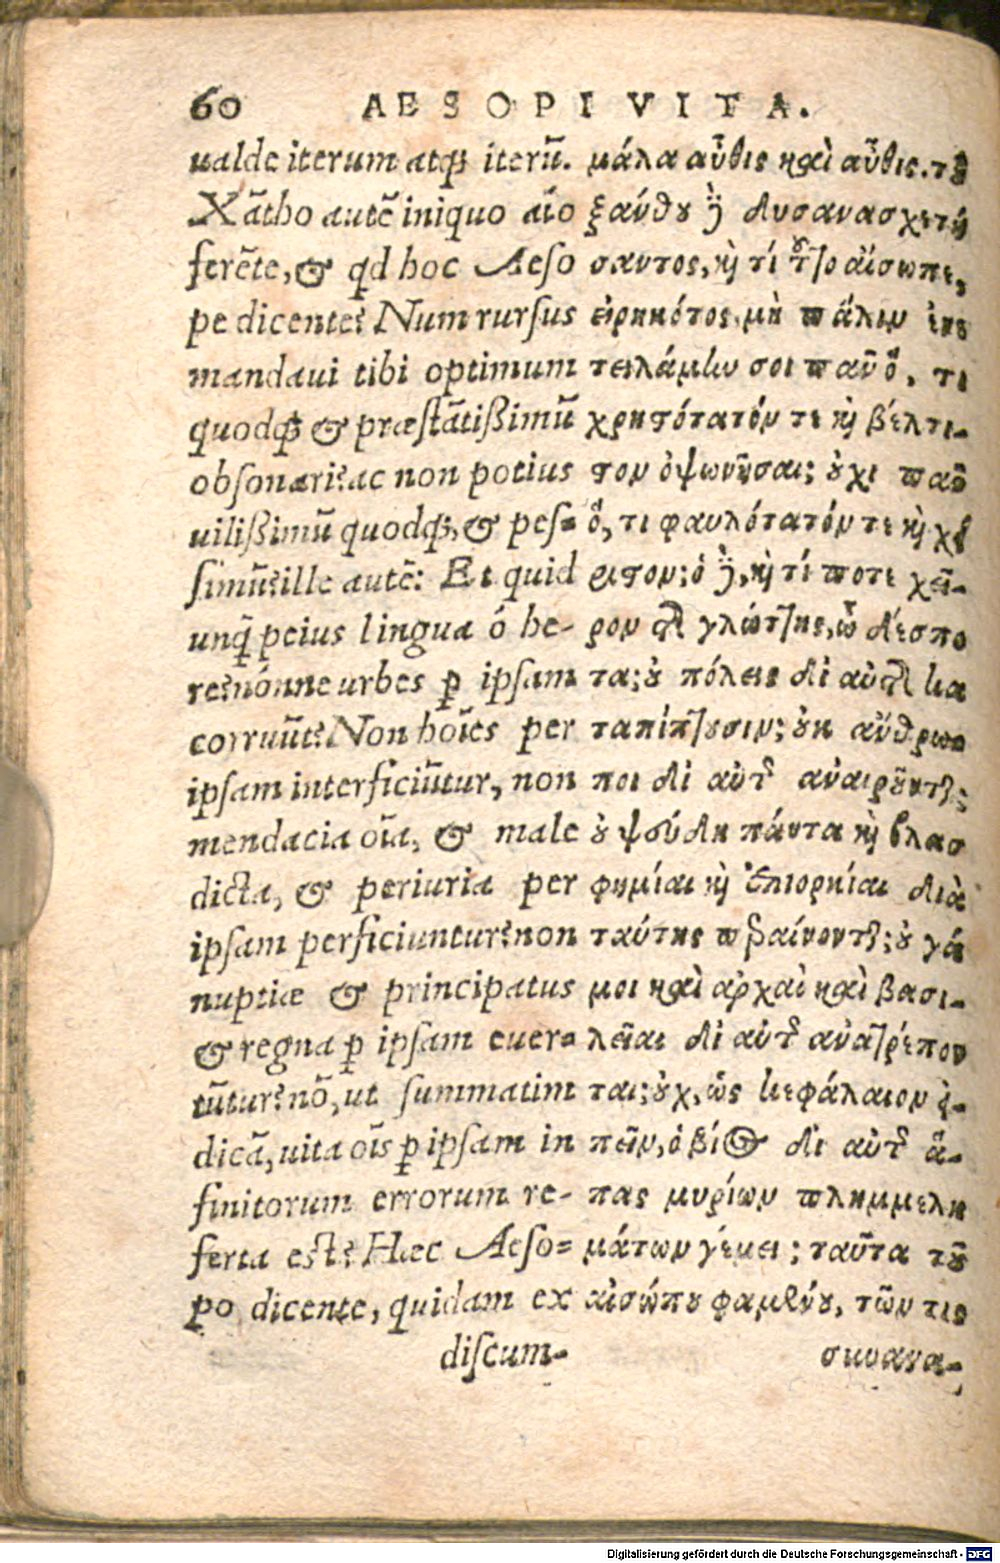 60 AESOPI VITA.
ualde iterum atq; iterū.
Xātho autē iniquo aīo
ferēte, & qd hoc Aeso
pe dicente? Num rursus
mandaui tibi optimum
quodq; & præstātißimū
obsonari? ac non potius
uilißimū quodq;, & pes-
simū? ille autē: Et quid
unq̃ peius lingua ó he-
re? nónne urbes p̱ ipsam
corruūt? Non hoīes per
ipsam interficiūtur, non
mendacia oīa, & male
dicta, & periuria per
ipsam perficiuntur? non
nuptiæ & principatus
& regna p̱ ipsam euer-
tūtur? nō, ut summatim
dicā, uita oīs p̱ ipsam in
finitorum errorum re-
ferta est? Hæc Aeso=
po dicente, quidam ex
discum-
μάλα αὖθις καὶ αὖθις. τοῦ
ξάνθου δὲ δυσανασχετή
σαντος, καὶ τί τοῦτο αἴσωπε,
εἰρηκότος, μὴ πάλιν ἐνε
τειλάμην σοι παν ὅ, τι
χρηστότατόν τε καὶ βέλτι-
στον ὀψωνῆσαι; οὐχὶ παν
ὅ, τι φαυλότατόν τε καὶ χεί
ριστον; ὁ δὲ, καὶ τί ποτε χεῖ-
ρον τῆς γλώττης, ὦ δέσπο
τα; οὐ πόλεις δι αὐτῆς κα
ταπίπτουσιν; οὐκ ἄνθρω-
ποι δι αὐτῆς ἀναιροῦνται;
οὐ ψεύδη πάντα καὶ βλασ
φημίαι καὶ ἐπιορκίαι διὰ
ταύτης περαίνονται; οὐ γά
μοι καὶ ἀρχαὶ καὶ βασι-
λεῖαι δι αὐτῆς ἀνατρέπον
ται; οὐχ, ὡς κεφάλαιον εἰ-
πεῖν, ὁ βίος δι αὐτῆς ἅ-
πας μυρίων πλημμελη
μάτων γέμει; ταῦτα τοῦ
αἰσώπου φαμένου, τῶν τις
συνανα-
Digitalisierung gefördert durch die Deutsche Forschungsgemeinschaft - DFG